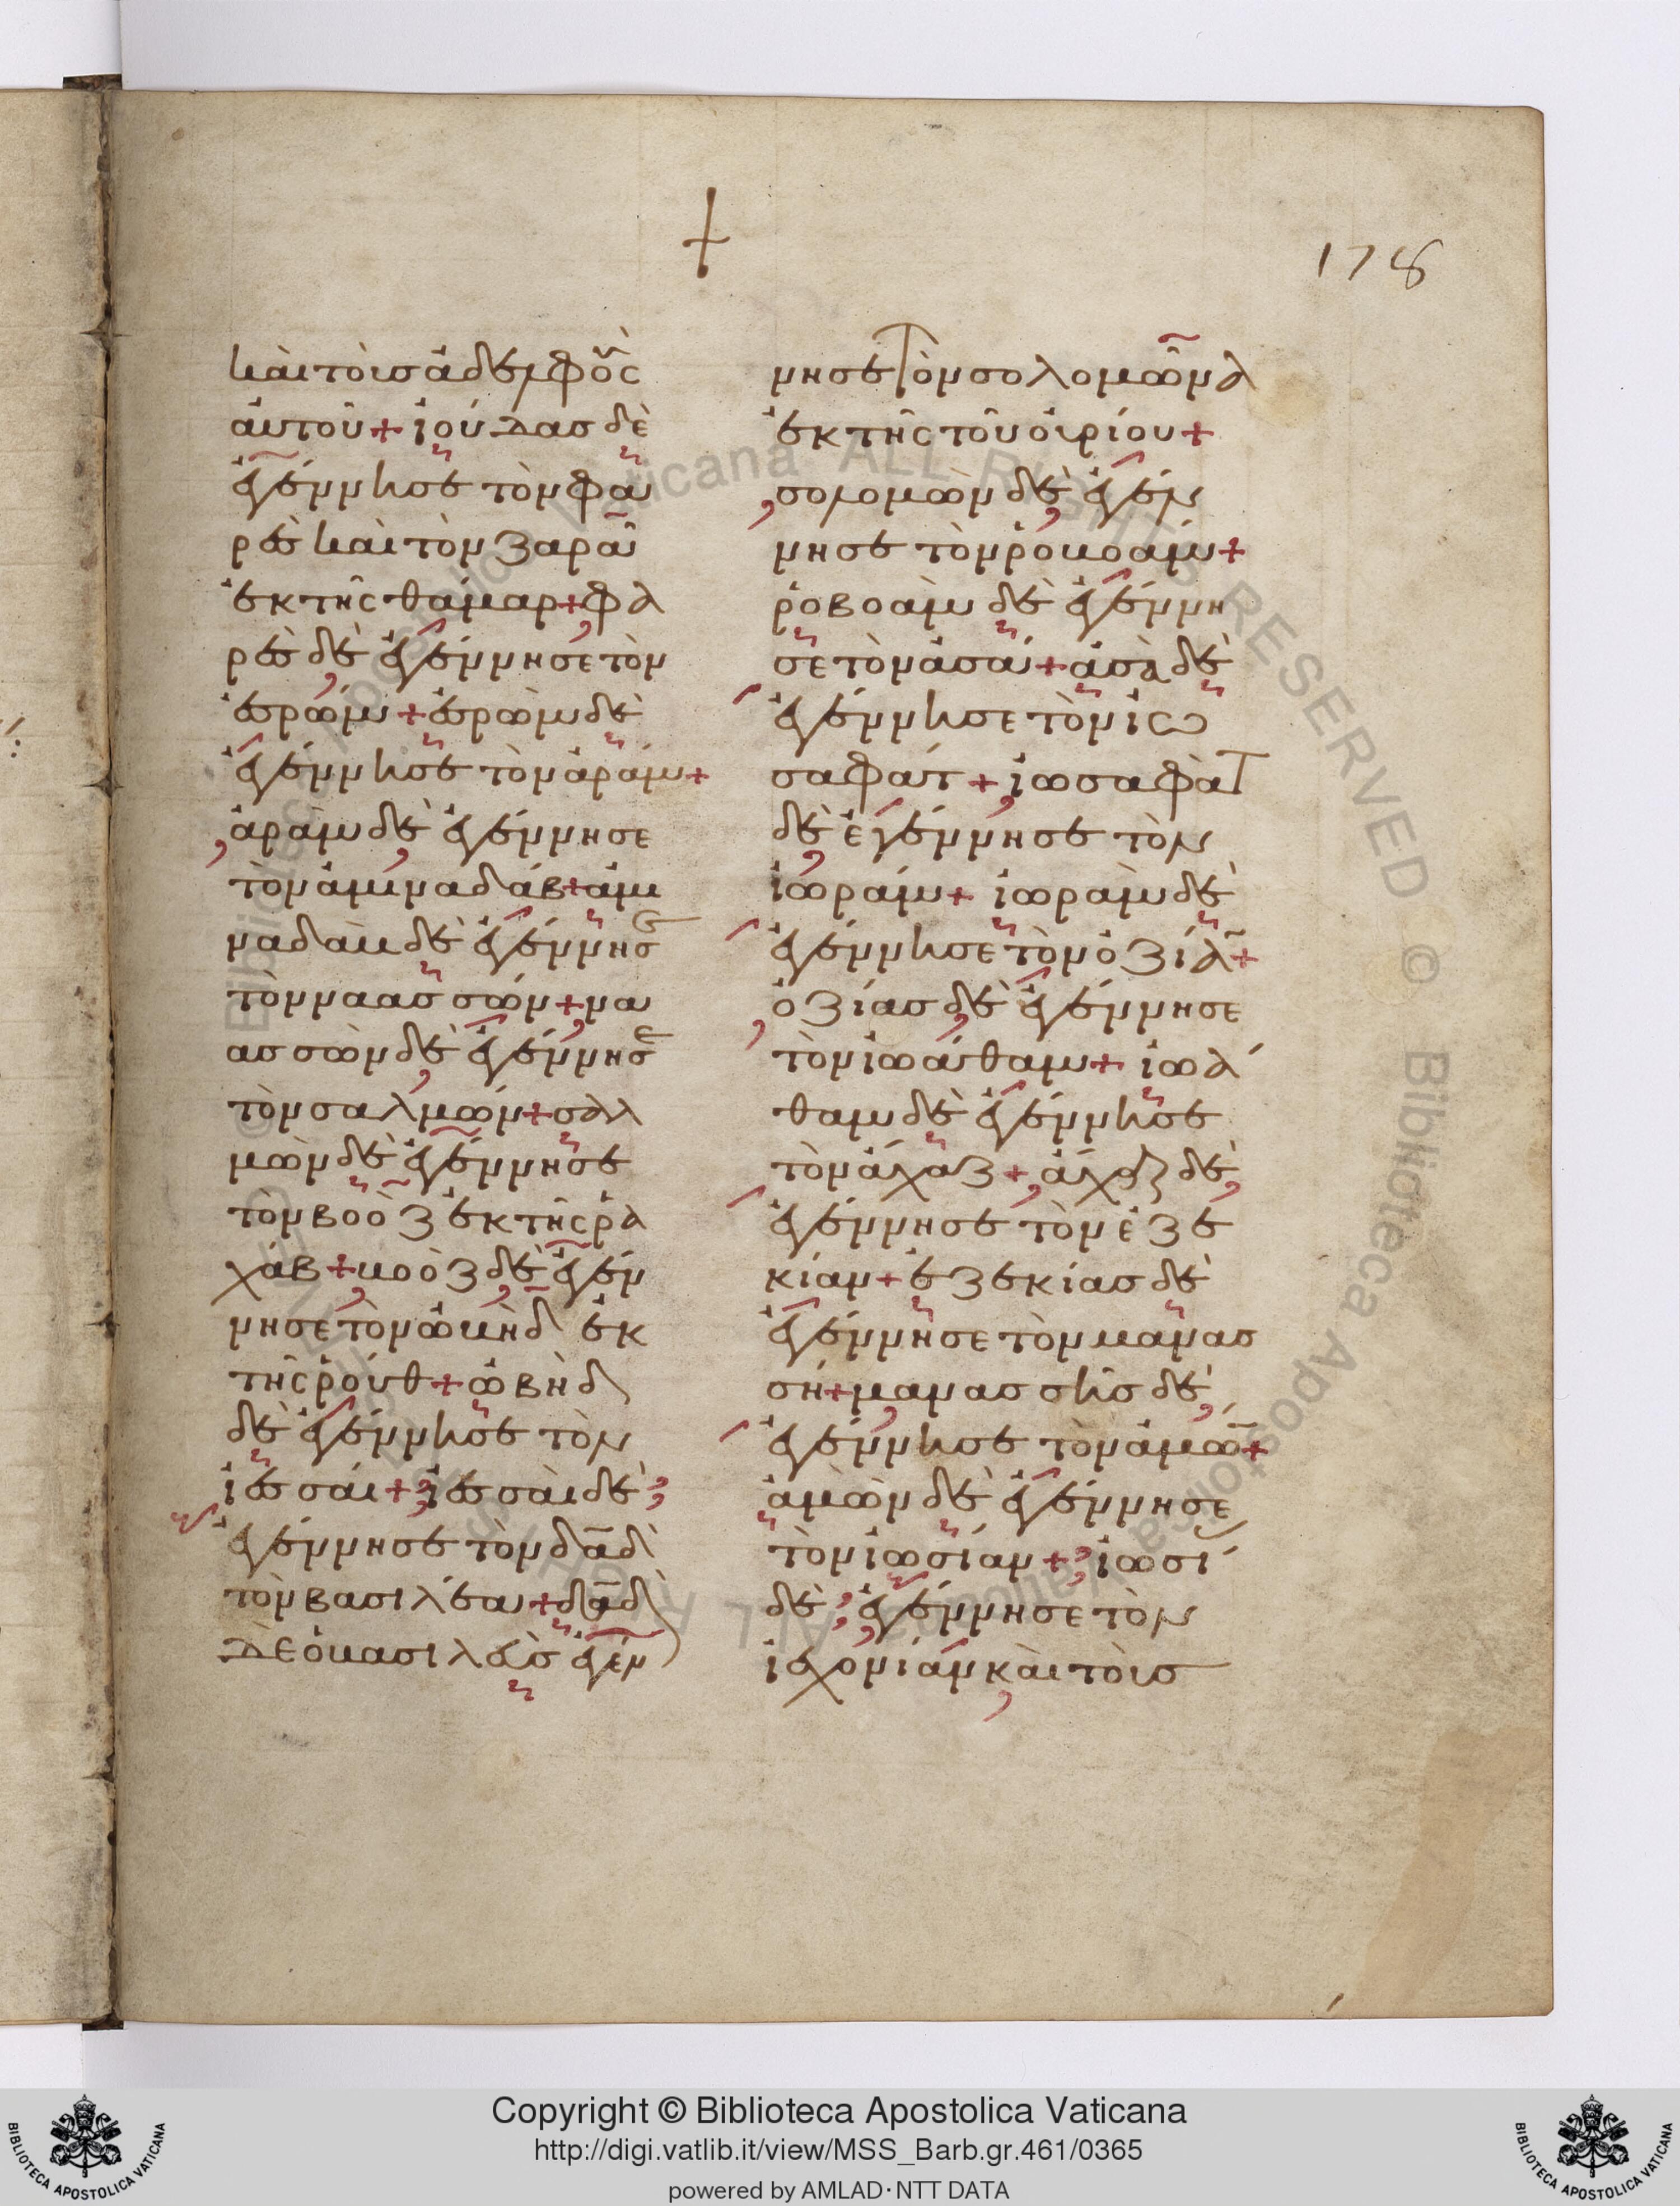 +
178
καὶ τοὺς ἀδελφοὺς
αὐτοῦ + ἰούδας δὲ
ἐγέννησε τὸν φα
ρὲς καὶ τὸν ζαρὰ
ἐκ τῆς θάμαρ + φα
ρὲς δὲ ἐγέννησε τὸν
ἐσρώμ + ἐσρὼμ δὲ
ἐγέννησε τὸν ἀράμ +
ἀρὰμ δὲ ἐγέννησε
τὸν ἀμιναδάβ + ἀμι
ναδὰβ δὲ ἐγέννησε
τὸν ναασσών + να
ασσὼν δὲ ἐγέννησε
τὸν σαλμών + σαλ
μὼν δὲ ἐγέννησε
τὸν βοὸζ ἐκ τῆς ῥα
χάβ + βοὸζ δὲ ἐγέν
νησε τὸν ὠβὴδ ἐκ
τῆς ῥούθ + ὠβὴδ
δὲ ἐγέννησε τὸν
ἰεσσαί + ἰεσσαὶ δὲ
ἐγέννησε τὸν δαδ
τὸν βασιλέα + δαδ
δὲ ὁ βασιλεὺς ἐγέν
νησε τὸν σολομῶνα
ἐκ τῆς τοῦ οὐρίου +
σολομὼν δὲ ἐγέν
νησε τὸν ῥοβοάμ +
ῥοβοὰμ δὲ ἐγέννη
σε τὸν ἀσά + ἀσὰ δὲ
ἐγέννησε τὸν ἰω
σαφάτ + ἰωσαφὰτ
δὲ ἐγέννησε τὸν
ἰωράμ + ἰωρὰμ δὲ
ἐγέννησε τὸν ὀζίαν +
ὀζίας δὲ ἐγέννησε
τὸν ἰωάθαμ + ἰωά
θαμ δὲ ἐγέννησε
τὸν ἄχαζ + ἄχαζ δὲ
ἐγέννησε τὸν ἐζε
κίαν + ἐζεκίας δὲ
ἐγέννησε τὸν μανασ
σή + μανασσῆς δὲ
ἐγέννησε τὸν ἀμών +
ἀμὼν δὲ ἐγέννησε
τὸν ἰωσίαν + ἰωσί
δὲ ἐγέννησε τὸν
ἰεχονίαν καὶ τοὺς
Copyright © Biblioteca Apostolica Vaticana
http://digi.vatlib.it/view/MSS_Barb.gr.461/0365
powered by AMLAD·NTT DATA
BIBLIOTECA APOSTOLICA VATICANA
BIBLIOTECA APOSTOLICA VATICANA